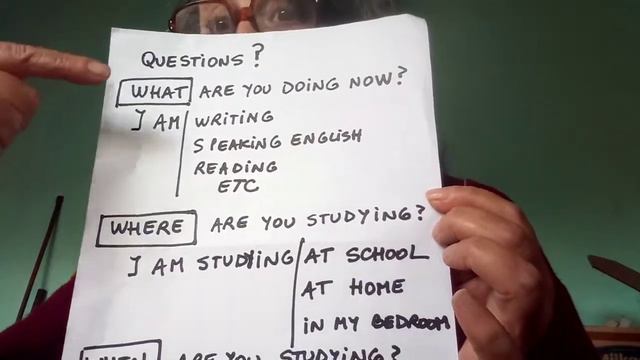 QUESTIONS?
WHAT ARE YOU DOING NOW?
I AM WRITING
SPEAKING ENGLISH
READING
ETC
WHERE ARE YOU STUDYING?
I AM STUDYING AT SCHOOL
AT HOME
IN MY BEDROOM
WHEN ARE YOU STUDYING?